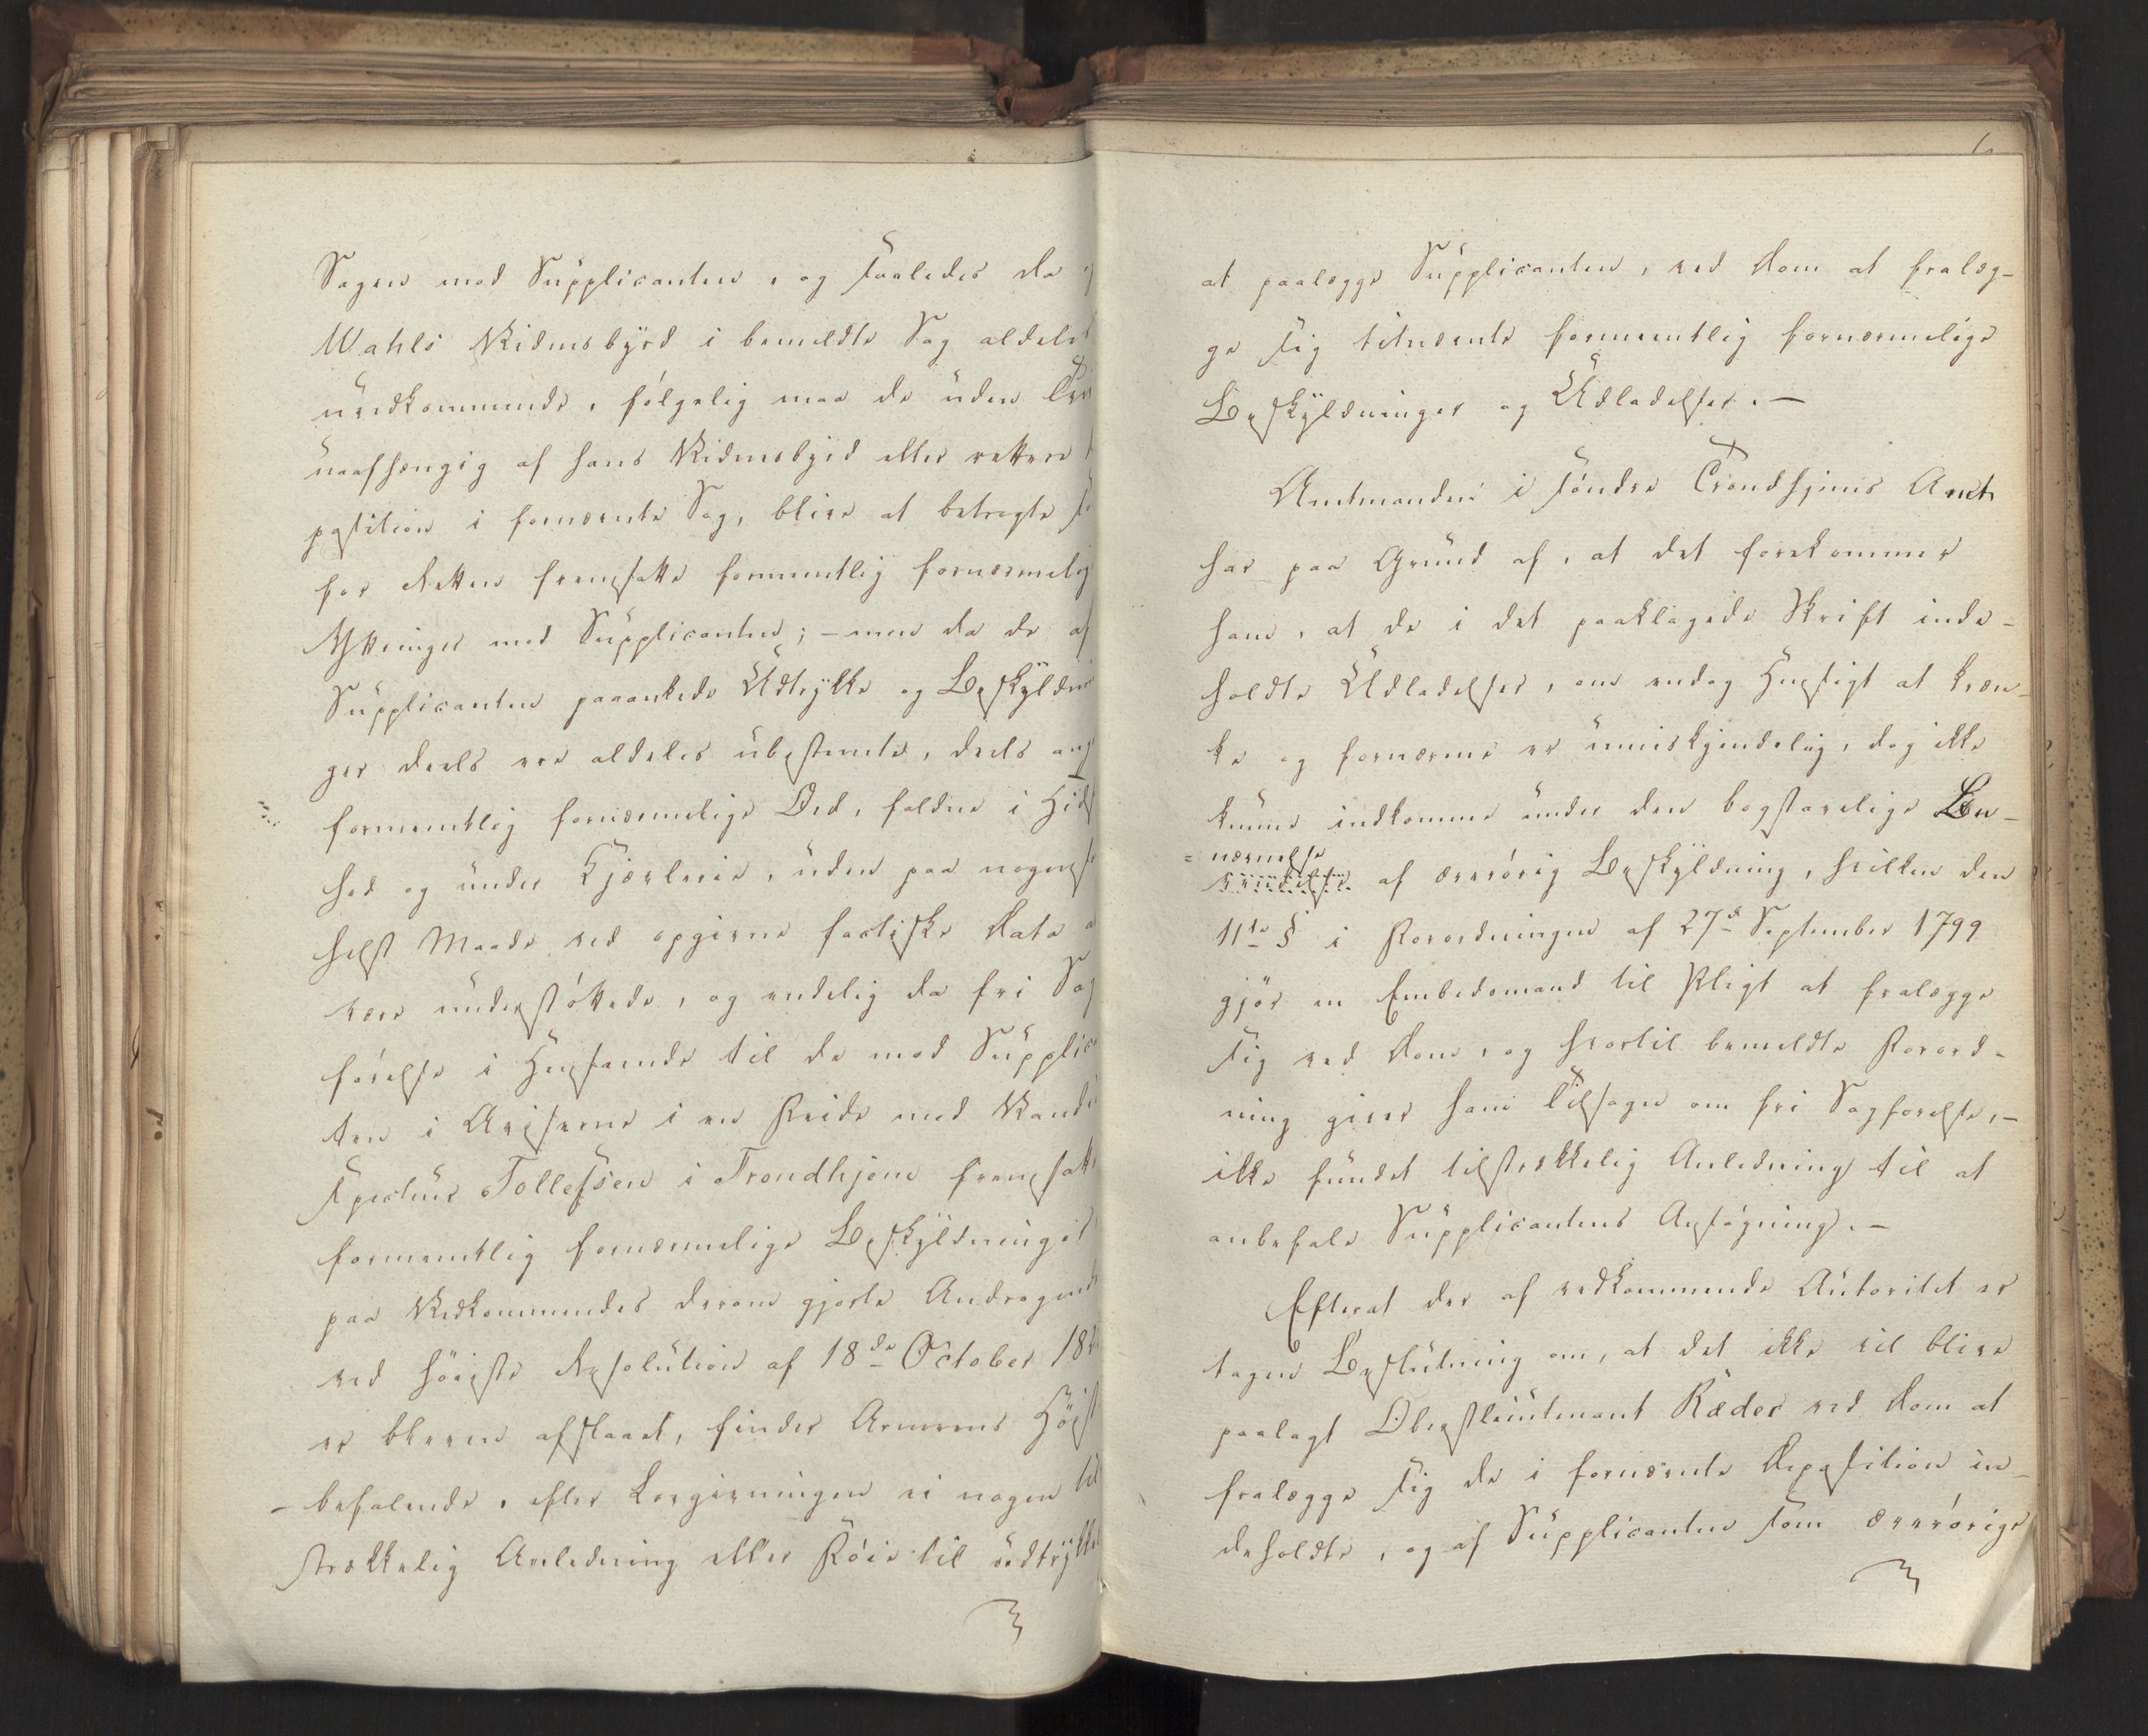 Sagen mod Supplicanten, og saaledes da
Wahls Vidnesbyrd i bemeldte Sag aldeles
uvedkommende, følgelig maa de uden
uafhængig af hans Vidnesbyrd eller rettere
position i fornævnte Sag, blive at betragte
for Retten fremsatte formentlig fornærmelig
Yttringer mod Supplicanten; – men da de af
Supplicanten paaankede Udtrykke og Beskyldni
ger deels ere aldeles ubestemte, deels
formentlig fornærmelige Ord, faldne i Hids
hed og under Kjævlerie, uden paa nogens
helst Maade ved opgivne factiske Data
være understøttede, og endelig da fri Sag
førelse i Henseende til de mod Supplica
ten i Aviserne i en Feide med Vandi
specteur Tollefsen i Trondhjem fremsatte
formentlig fornærmelige Beskyldninger
paa Vedkommendes derom gjorte Andragende
ved høieste Resolution af 18de October 18
er bleven afslaaet, finder Armeens Høist
-befalende, efter Lovgivningen ei nogen til
strækkelig Anledning eller Føie til
at paalægge Supplicanten, ved Dom at fralæg-
ge sig titnævnte formentlig fornærmelige
Beskyldninger og Udladelser. –
Amtmanden i søndre Trondhjems Amt
har paa Grund af, at det forekommer
ham, at de i det paaklagede Skrift inde-
holdte Udladelser, om endog Hensigt at kræn-
ke og fornærme er umiskjendelig, dog ikke
kunne indkomme under den bogstavelige Be-
=nævnelse
af ærerørig Beskyldning, hvilken den
11te § i Forordningen af 27de September 1799
gjør en Embedsmand til Pligt at fralægge
sig ved Dom, og hvortil bemeldte Forord-
ning giver ham Tilsagn om fri Sagførelse, –
ikke fundet tilstrækkelig Anledning til at
anbefale Supplicantens Ansøgning. –
Efterat der af vedkommende Autoritet er
tagen Beslutning om, at det ikke vil blive
paalagt Oberstlieutenant Ræder ved Dom at
fralægge sig de i fornævnte Deposition in-
deholdte, og af Supplicanten som ærerørige